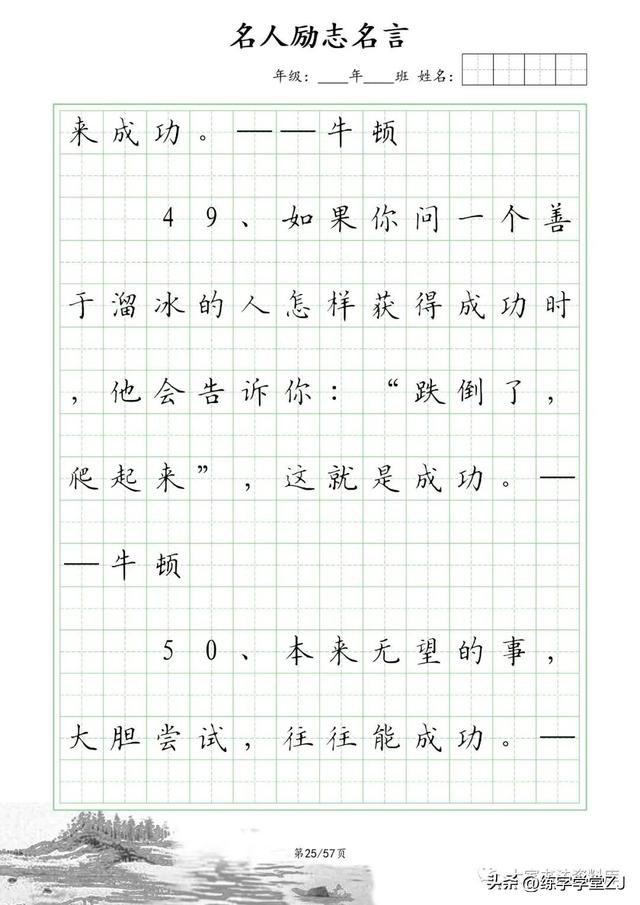 名人励志名言
年级：____年____班 姓名：
来成功。——牛顿
49、如果你问一个善
于溜冰的人怎样获得成功时
，他会告诉你：“跌倒了，
爬起来”，这就是成功。—
—牛顿
50、本来无望的事，
大胆尝试，往往能成功。—
第25/57页
头条@练字学堂ZJ